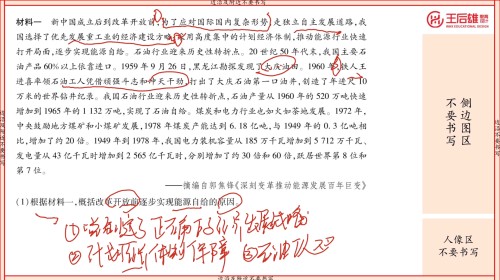 边沿及附近不要书写
王后雄
材料一 新中国成立后到改革开放前,为了应对国际国内复杂形势,走独立自主发展道路,我
国选择了优先发展重工业的经济建设方略,采用高度集中的计划经济体制,推动能源行业快速
打开局面,逐步实现能源自给。石油行业迎来历史性转折点。20世纪50年代末,我国主要石
油产品60%以上依靠进口。1959年9月26日,黑龙江勘探发现了大庆油田。1960年,铁人王
进喜率领石油工人凭借顽强斗志和冲天干劲,打出了大庆石油第一口油井,创造了年进尺10
万米的世界钻井纪录。我国石油行业迎来历史性转折点,石油产量从1960年的520万吨快速
增加到1965年的1132万吨,实现了石油自给。煤炭和电力行业也如火如荼地发展。1972年,
中央鼓励地方煤矿和小煤矿发展,1978年煤炭产能达到6.18亿吨,与1949年的0.3亿吨相
比,增加了约20倍。1949年到1978年,我国电力装机容量从185万千瓦增加到5712万千瓦,
发电量从43亿千瓦时增加到2565亿千瓦时,分别增加了约30倍和60倍,跃居世界第8位和
第7位。
——摘编自郭焦锋《深刻变革推动能源发展百年巨变》
(1)根据材料一,概括改革开放前逐步实现能源自给的原因。
正确的 发展战略
②计划经济体制保障 ③石油
侧边图区
不要书写
人像区
不要书写